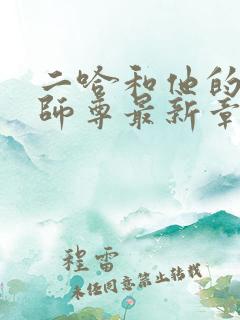 二哈和他的
師尊最新章
程雷
未经同意禁止转载